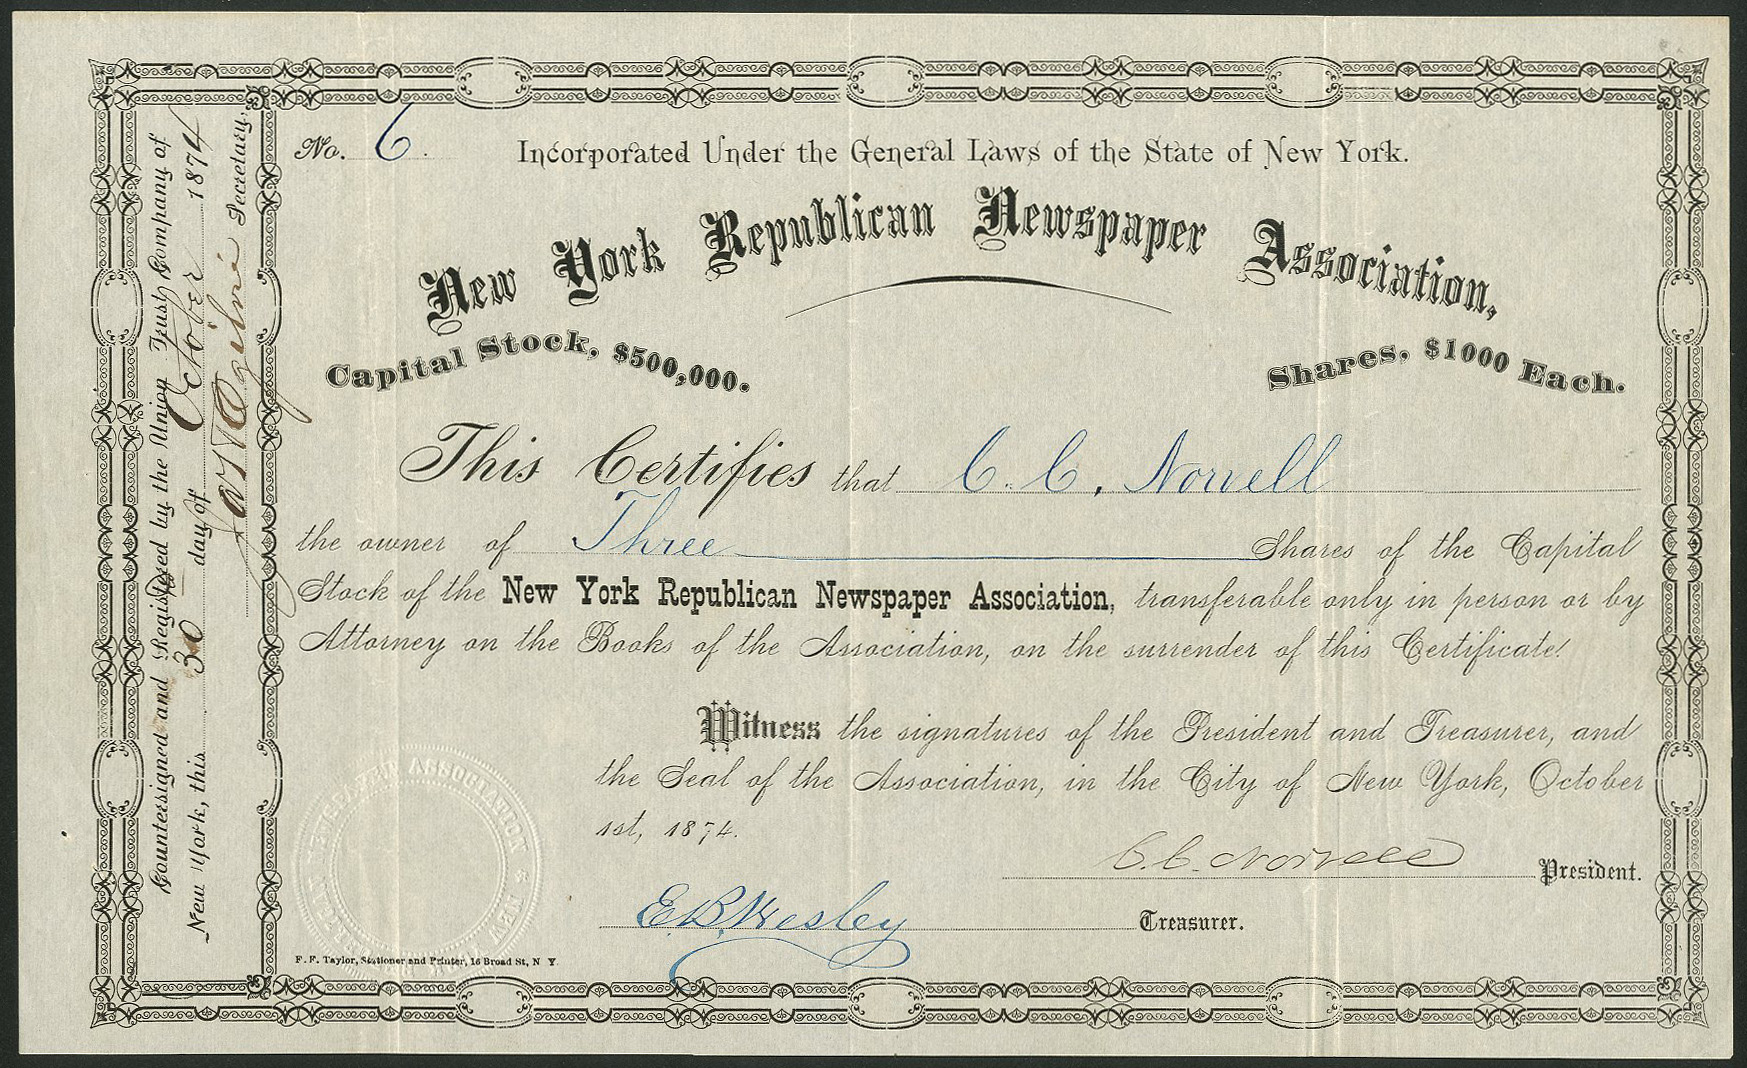 No. 6.
Incorporated Under the General Laws of the State of New York.
New York Republican Newspaper Association,
Capital Stock, $500,000.
Shares, $1000 Each.
This Certifies that C. C. Norvell
the owner of Three Shares of the Capital
Stock of the New York Republican Newspaper Association, transferable only in person or by
Attorney on the Books of the Association, on the surrender of this Certificate.
Witness the signatures of the President and Treasurer, and
the Seal of the Association, in the City of New York, October
1st, 1874.
C. C. Norvell President.
E. B. Wesley Treasurer.
F. F. Taylor, Stationer and Printer, 16 Broad St, N Y.
Countersigned and Registered by the Union Trust Company of
New York, this 30 day of October 1874
Secretary.
NEWSPAPER ASSOCIATION & NEW